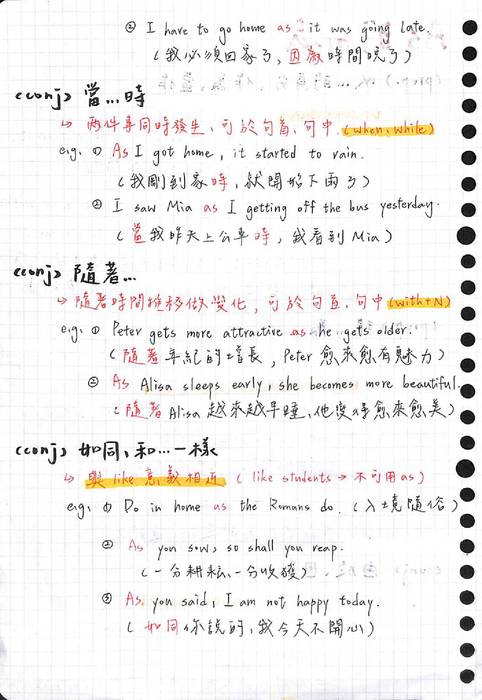 ② I have to go home as it was going late.
(我必須回家了,因為時間晚了)
(conj) 當...時
↳ 兩件事同時發生,可於句首,句中 (when, while)
e.g. ① As I got home, it started to rain.
(我剛到家時,就開始下雨了)
② I saw Mia as I getting off the bus yesterday.
(當我昨天上公車時,我看到 Mia)
(conj) 隨著...
↳ 隨著時間推移做變化,可於句首,句中 (with+N)
e.g. ① Peter gets more attractive as he gets older.
(隨著年紀的增長,Peter 愈來愈有魅力)
② As Alisa sleeps early, she becomes more beautiful.
(隨著 Alisa 越來越早睡,他變得愈來愈美)
(conj) 如同,和...一樣
↳ 與 like 意義相近 (like students → 不可用 as)
e.g. ① Do in home as the Romans do. (入境隨俗)
② As you sow, so shall you reap.
(一分耕耘一分收穫)
③ As you said, I am not happy today.
(如同你說的,我今天不開心)